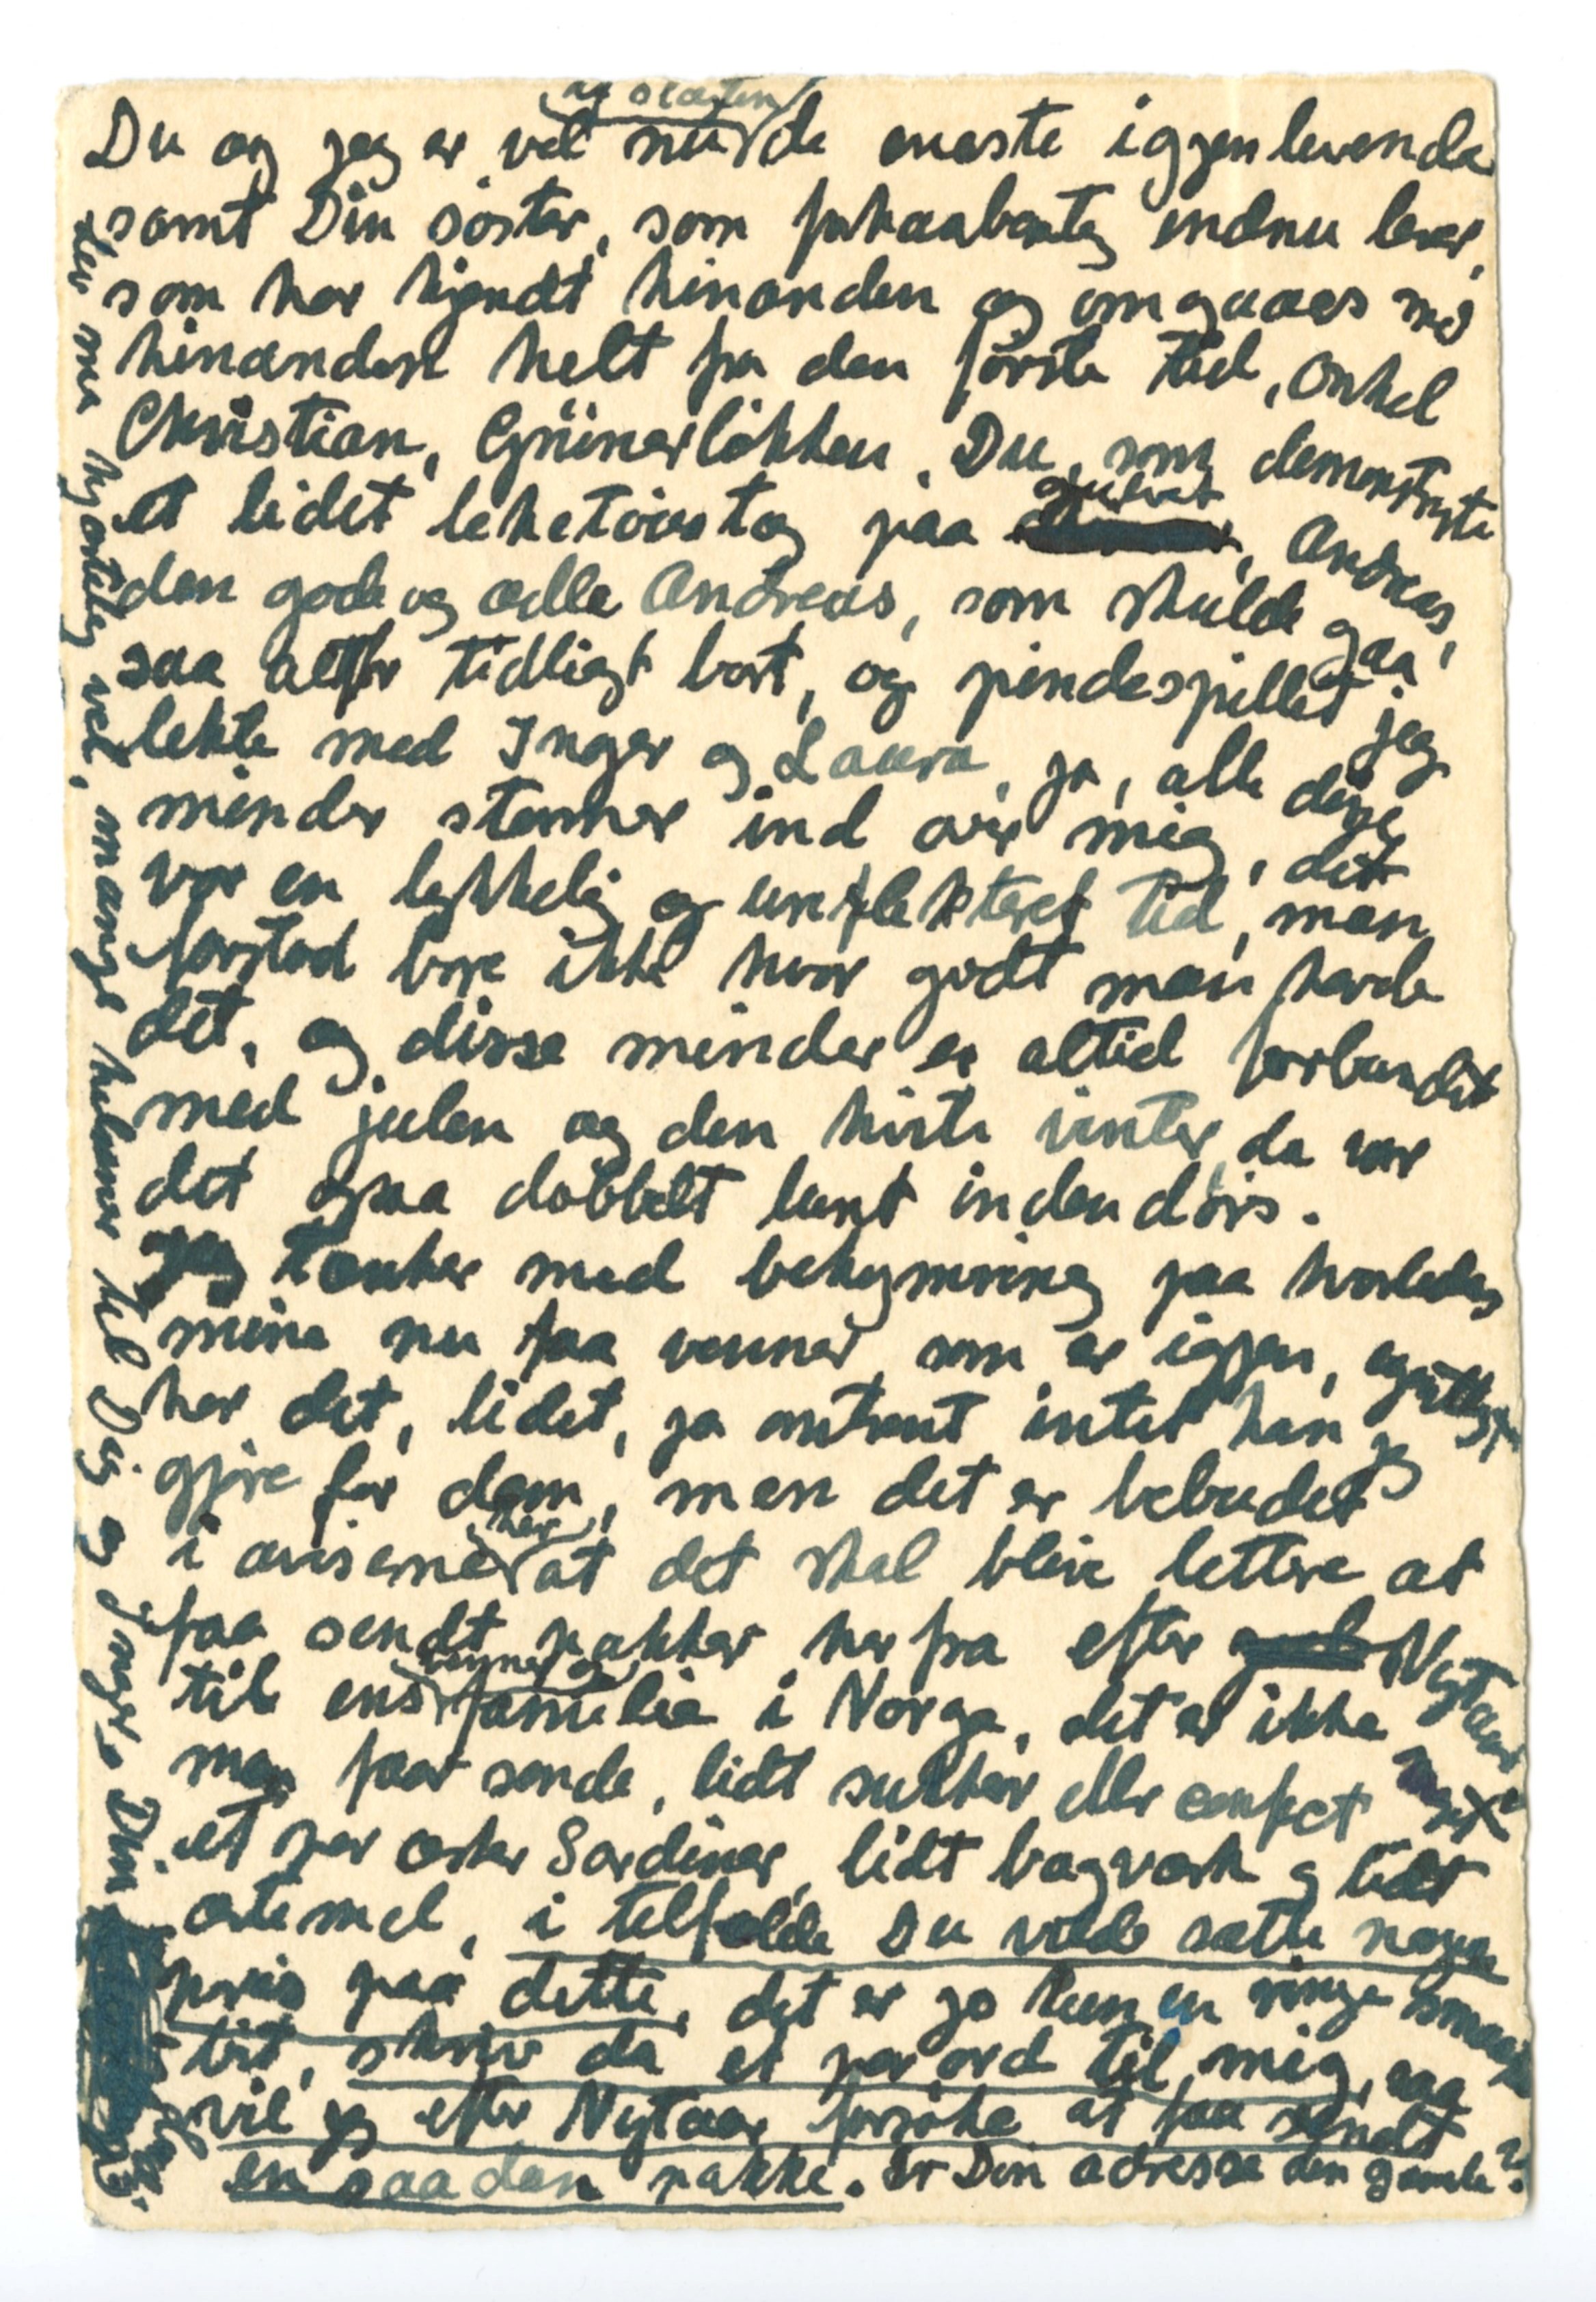 af slægten
Du og jeg er vel nu de eneste igjenlevende
samt Din søster, som forhaabentlig endnu lever,
som har kjendt hinanden og omgaaes med
hinanden helt fra den første tid, Onkel
Christian, Grünerløkken. Du, som demonstrerte
et lidet leketøistog paa gulvet, Andreas,
den gode og ædle Andreas, som skulde gaa
saa altfor tidligt bort, og pindespillet jeg
lekte med Inger og Laura, ja, alle disse
minder stormer ind over mig, det
var en lykkelig og unreflekteret tid, man
forstod bare ikke hvor godt man havde
det, og disse minder er altid forbundet
med julen og den hvite vinter, da var
det ogsaa dobbelt lunt indendørs.
Jeg tænker med bekymring paa hvorledes
mine nu faa venner, som er igjen, egentlig
har det, lidet, ja omtrent intet kan jeg
gjøre for dem, men det er bebudet
i aviserne her at det skal blive lettere at
faa sendt pakker herfra efter Nytaar
til ens venner og familie i Norge, det er ikke meget
man faar sende, lidt sukker eller confect
et par æsker Sardiner, lidt bagværk og lidt
ostemel, i tilfælde Du vilde sætte nogen
pris paa dette, det er jo kun en ringe smags
bit, skriv da et par ord til mig, saa
vil jeg efter Nytaar forsøke at faa sendt
en saadan pakke. Er Din adresse den gamle?
Lev nu hjertelig vel, mange hilsener til Dig og Jagvis Din